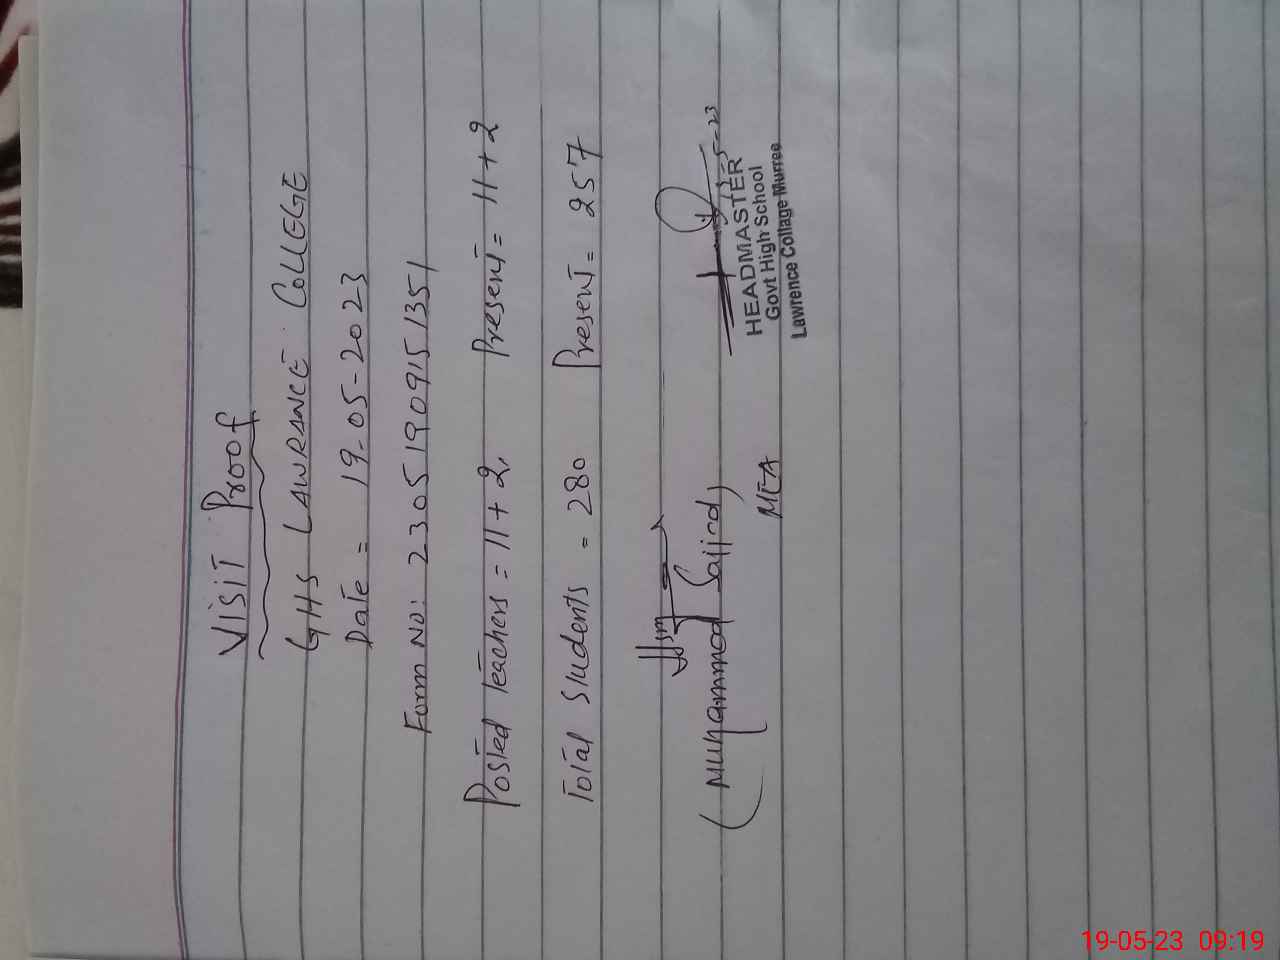 Visit Proof
GHS LAWRANCE COLLEGE
Date = 19-05-2023
Form No: 23051909151351
Posted Teachers = 11+2, Present = 11+2
Total Students = 280 Present = 257
(Muhammad Sajjad)
MEA
HEADMASTER
Govt High School
Lawrence Collage Murree
19-05-23 09:19